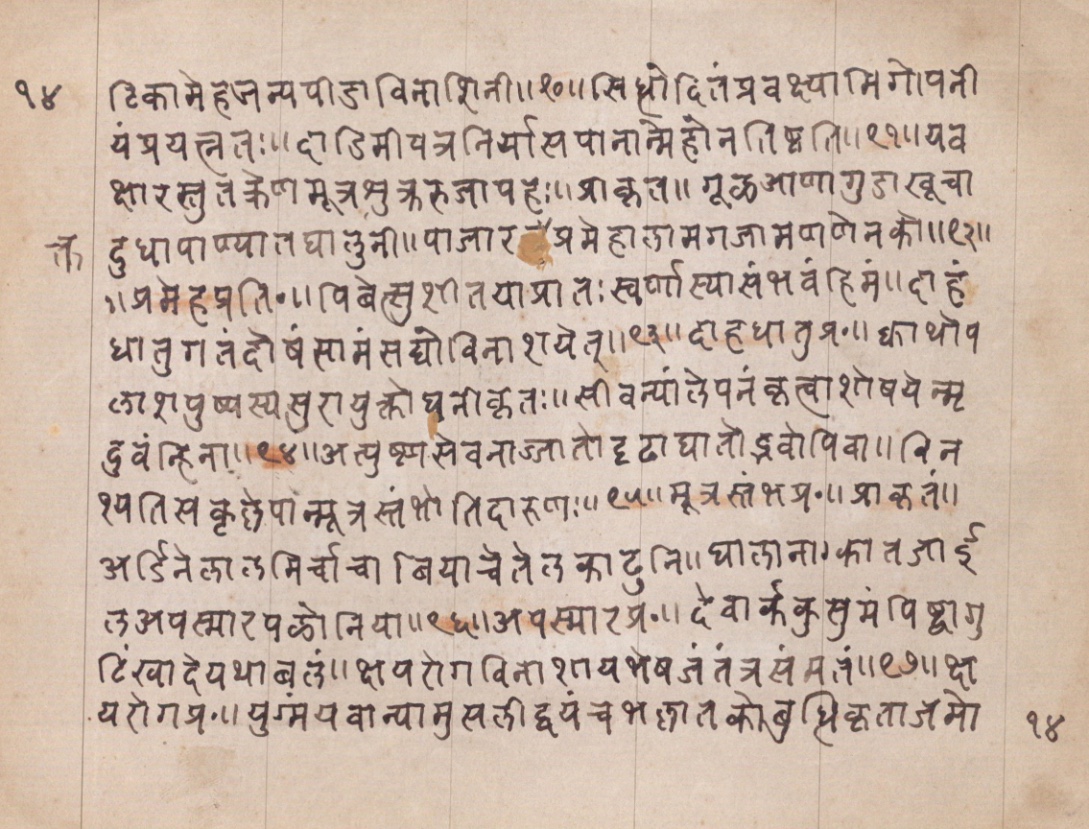 १४ टिकामेहजन्यपीडाविनाशिनी॥१०॥सिद्धोदितंप्रवक्ष्यामिगोपनी
यंप्रयत्नतः॥दाडिमीपत्रनिर्यासपानान्मेहोनतिष्ठति॥११॥यव
क्षारस्तुतक्रेणमूत्रशुक्ररुजापहः॥प्राकृत॥गूळआणागुडाखूचा
क दुधापाण्यातघालुनी॥पाजार प्रमेहालामगजामपाणेनको॥१२॥
॥प्रमेहप्रति॰॥पिबेत्सुशीतयाप्रातःस्वर्णास्यासंभवंहिमं॥दाहं
धातुगतंदोषंसामंसद्योविनाशयेत्॥१३॥दाहधातुप्र॰॥क्वाथोप
लाशपुष्पस्यसुरायुक्तोघनीकृतः॥सीवन्यांलेपनंकृत्वाशोषयेन्मृ
दुवंन्हिना॥१४॥अत्युष्णसेवनाज्जातोहृढाघातोद्भवोपिवा॥विन
श्यतिसकृल्लेपान्मूत्रस्तंभोतिदारुणः॥१५॥मूत्रस्तंभप्र॰॥प्राकृतं॥
अर्डिनेलालमिर्चाचाबियाचेतेलकाटुनि॥घालानाकातजाई
लअपस्मारपळोनिया॥१६॥अपस्मारप्र॰॥देवार्ककुसुमंपिष्ट्वागु
टिंखादेयथाबलं॥क्षयरोगविनाशायभेषजंतंत्रसंमतं॥१७॥क्ष
यरोगप्र॰॥युग्मंयवान्यामुसलीद्वयंचभल्लातकोबुधिकृताजमो १४